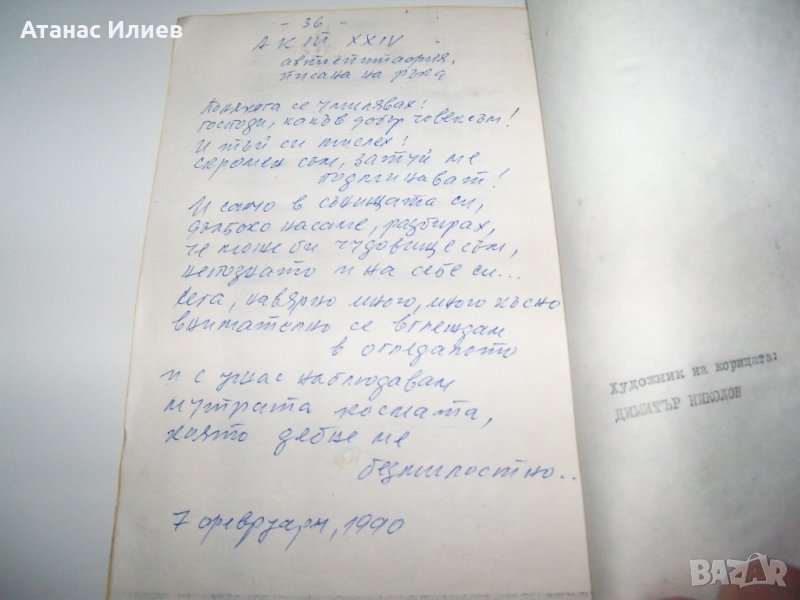 Атанас Илиев
- 36 -
АКТ XXIV
автоепитафия,
писана на ръка
Понякога се умилявах:
господи, какъв добър човек съм!
И тъй си мислех!
скромен съм, затуй ме
подминават!
И само в сънищата си,
дълбоко насаме, разбирах,
че може би чудовище съм,
непознато и на себе си...
Сега, навярно много, много късно
внимателно се вглеждам
в огледалото
и с ужас наблюдавам
мутрата космата,
която дебне ме
безмилостно..
7 февруари, 1990
Художник на корицата:
ДИМИТЪР НИКОЛОВ
BAZAR